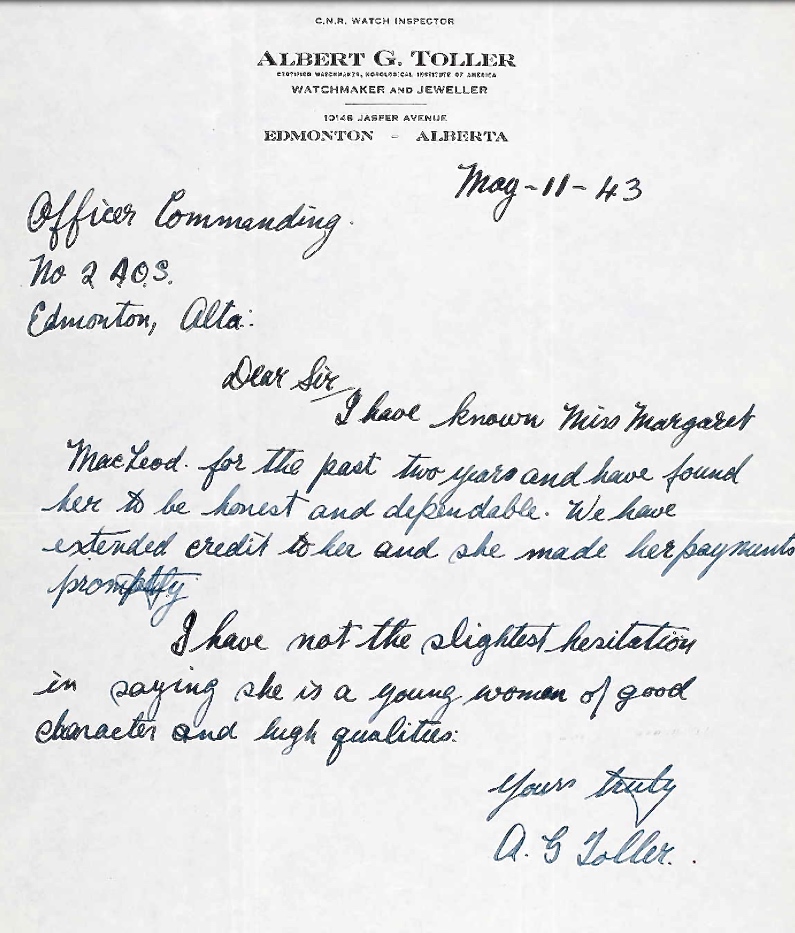 C.N.R. WATCH INSPECTOR
ALBERT G. TOLLER
CERTIFIED WATCHMAKER, HOROLOGICAL INSTITUTE OF AMERICA
WATCHMAKER AND JEWELLER
10146 JASPER AVENUE
EDMONTON - ALBERTA
May-11-43
Officer Commanding.
No 2 A.O.S.
Edmonton, Alta.
Dear Sir
I have known Miss Margaret
MacLeod. for the past two years and have found
her to be honest and dependable. We have
extended credit to her and she made her payments
promptly
I have not the slightest hesitation
in saying she is a young woman of good
character and high qualities.
Yours truly
A. G Toller.